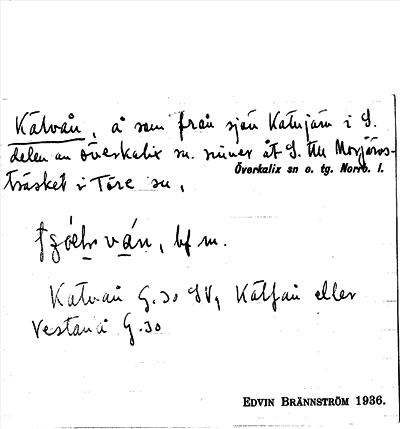 Kätvån, å som från sjön Katujärv i S.
delen av Överkalix sn. rinner åt S. till Morjärvs-
träsket i Töre sn,
Överkalix sn o. tg. Norrb. l.
ván, bf m.
Katvån G.30 SV, Kätfån eller
Vestanå G.30
EDVIN BRÄNNSTRÖM 1936.